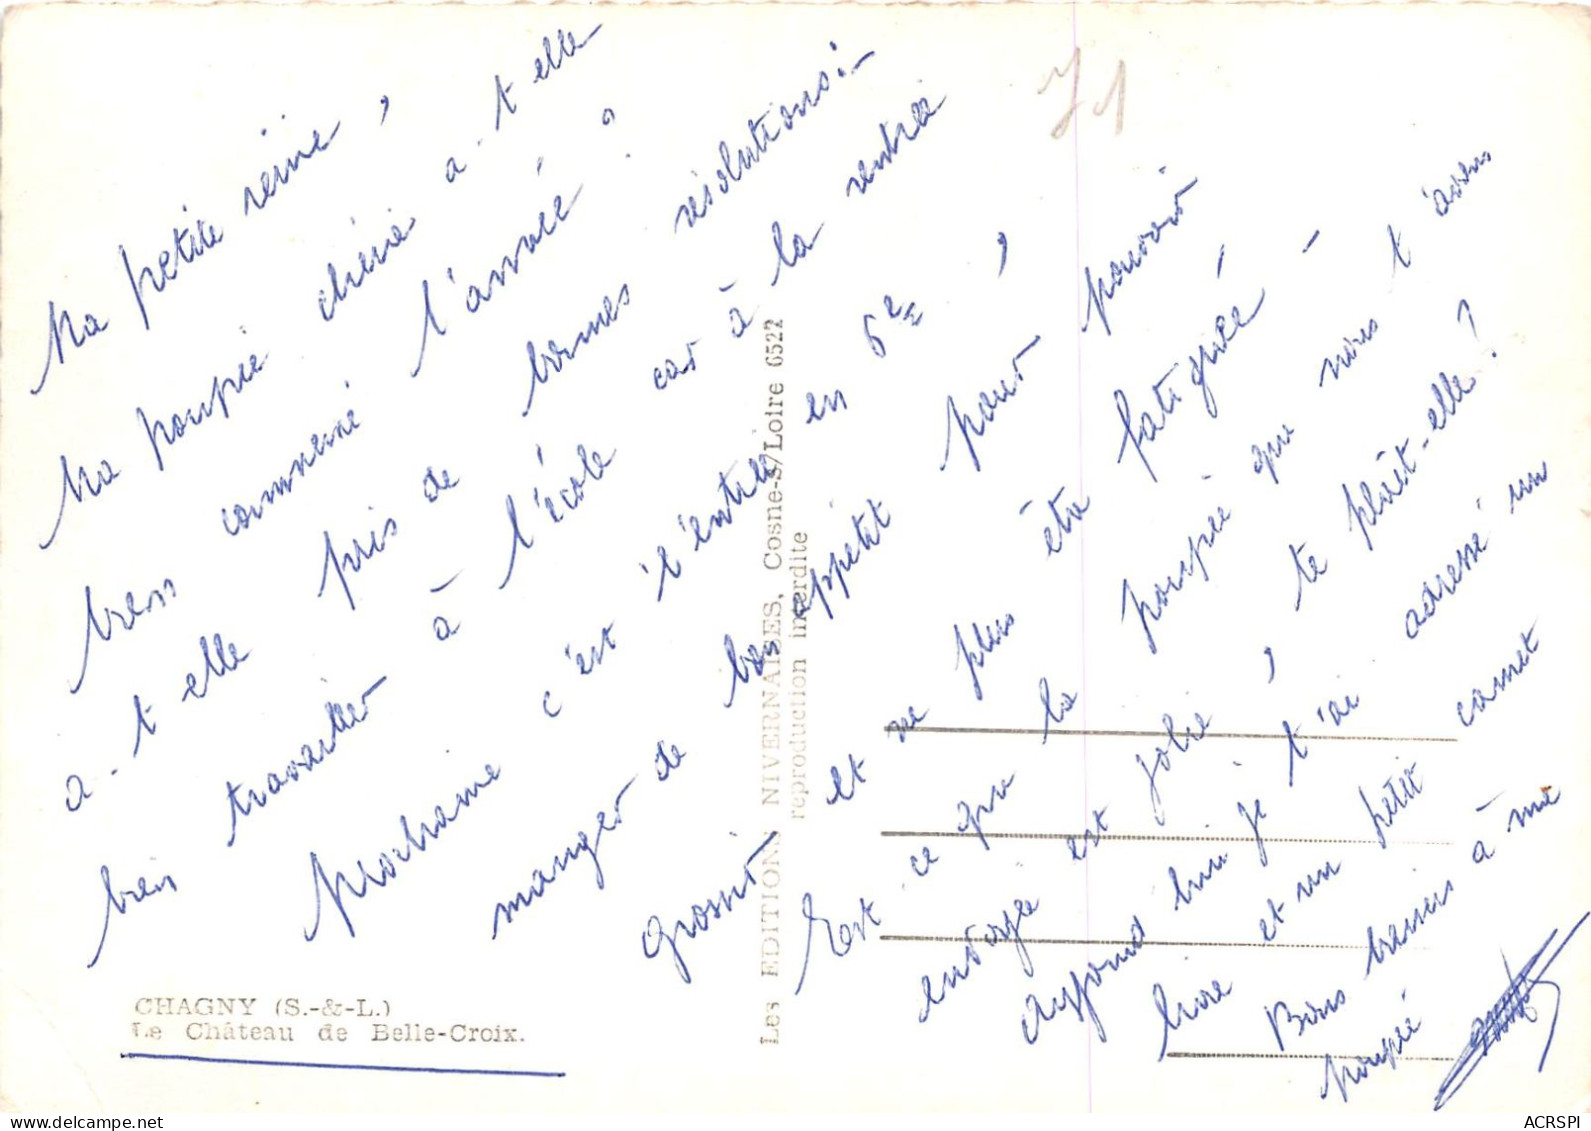 Ma petite reine,
Ma poupée chérie a-t-elle
bien commencé l'année ?
a-t-elle pris de bonnes résolutions :-
bien travailler à l'école car à la rentrée
prochaine c'est l'entrée en 6e,
manger de bon appétit pour pouvoir
grossir et ne plus être fatiguée -
Est ce que la poupée que nous t'avons
envoyée est jolie, te plaît-elle ?
aujourd'hui je t'ai adressé un
livre et un petit carnet
Bons baisers à ma
poupée
71
CHAGNY (S.-&-L.)
Le Château de Belle-Croix.
Les EDITIONS NIVERNAISES, Cosne-s/Loire 6522
reproduction interdite
ACRSPI